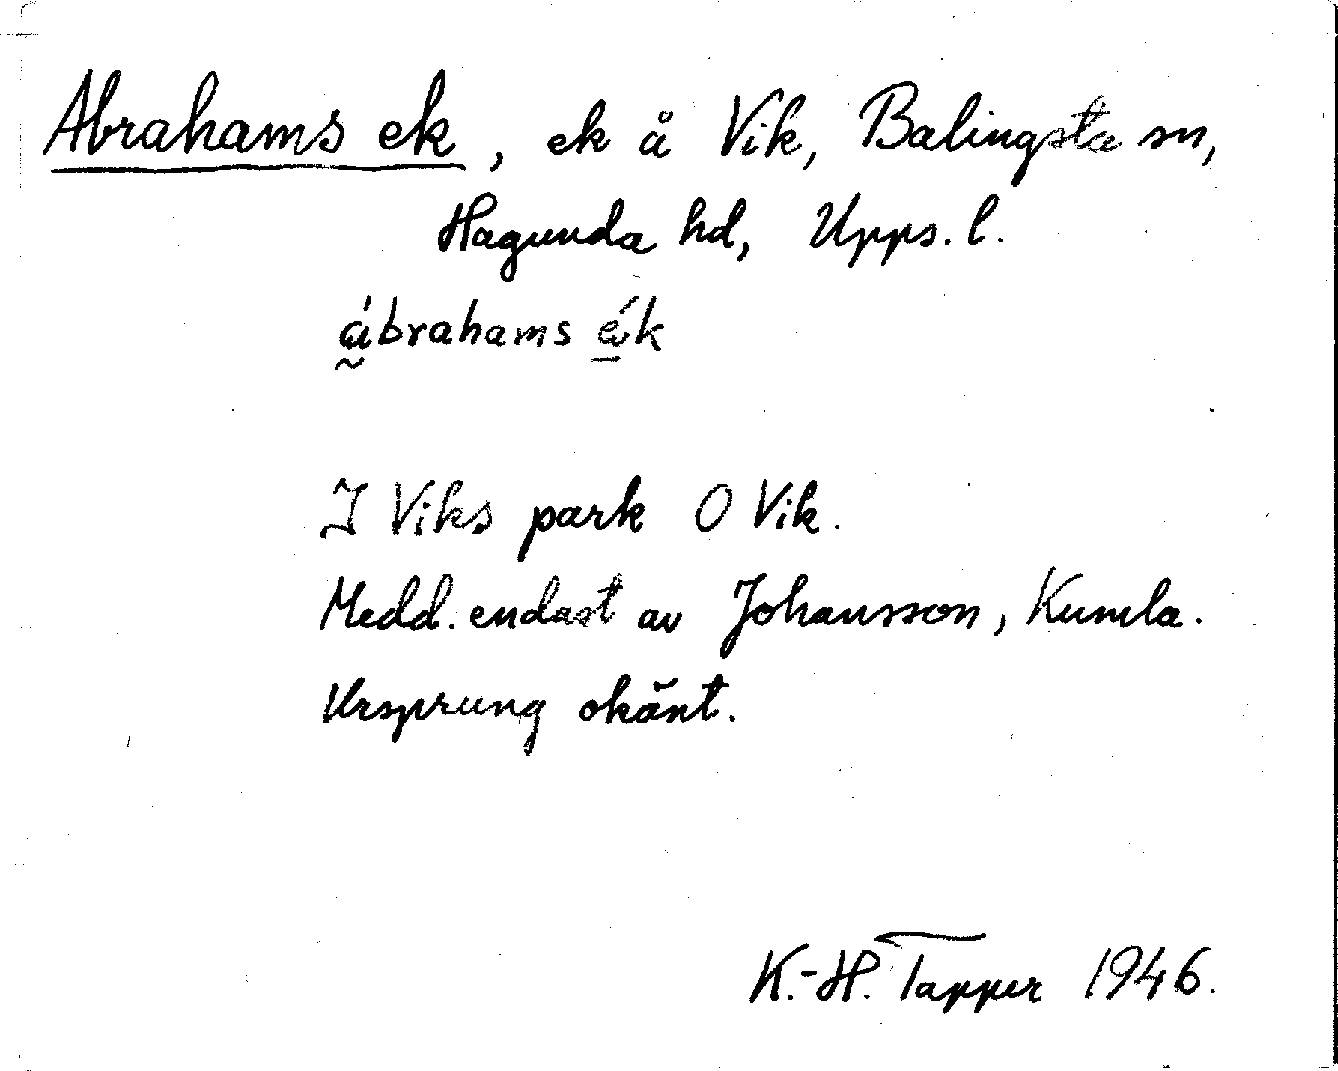 Abrahams ek, ek å Vik, Balingsta sn,
Hagunda hd, Upps. l.
ábrahams ék
I Viks park O Vik.
Medd. endast av Johansson, Kumla.
Ursprung okänt.
K.-H. Tapper 1946.